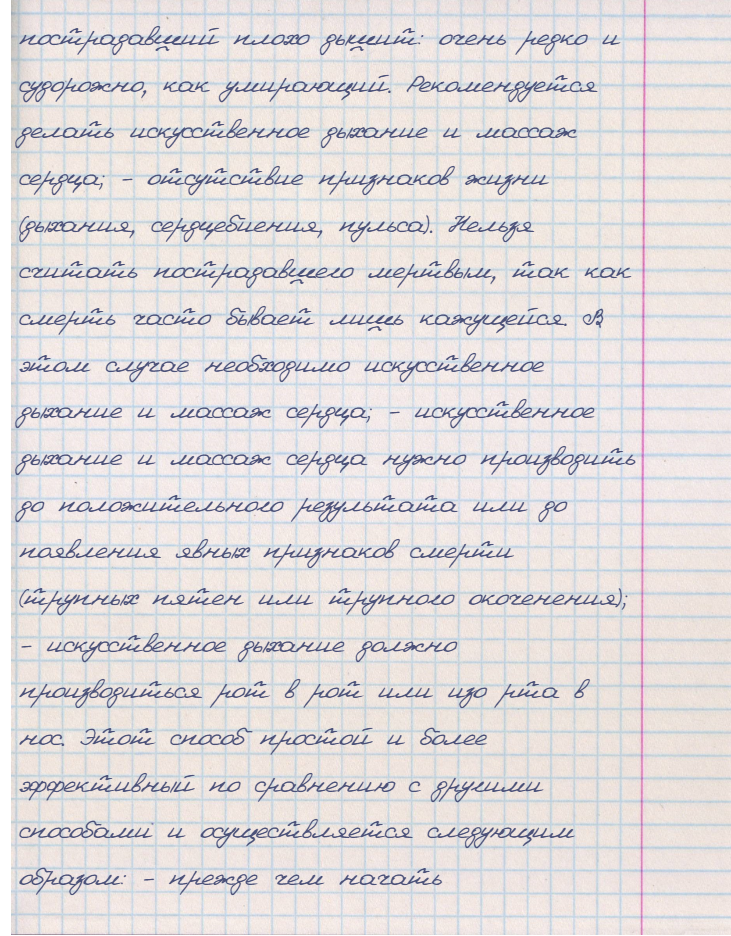 пострадавший плохо дышит: очень редко и
судорожно, как умирающий. Рекомендуется
делать искусственное дыхание и массаж
сердца; – отсутствие признаков жизни
(дыхания, сердцебиения, пульса). Нельзя
считать пострадавшего мертвым, так как
смерть часто бывает лишь кажущейся. В
этом случае необходимо искусственное
дыхание и массаж сердца; – искусственное
дыхание и массаж сердца нужно производить
до положительного результата или до
появления явных признаков смерти
(трупных пятен или трупного окоченения);
– искусственное дыхание должно
производиться рот в рот или изо рта в
нос. Этот способ простой и более
эффективный по сравнению с другими
способами и осуществляется следующим
образом: – прежде чем начать